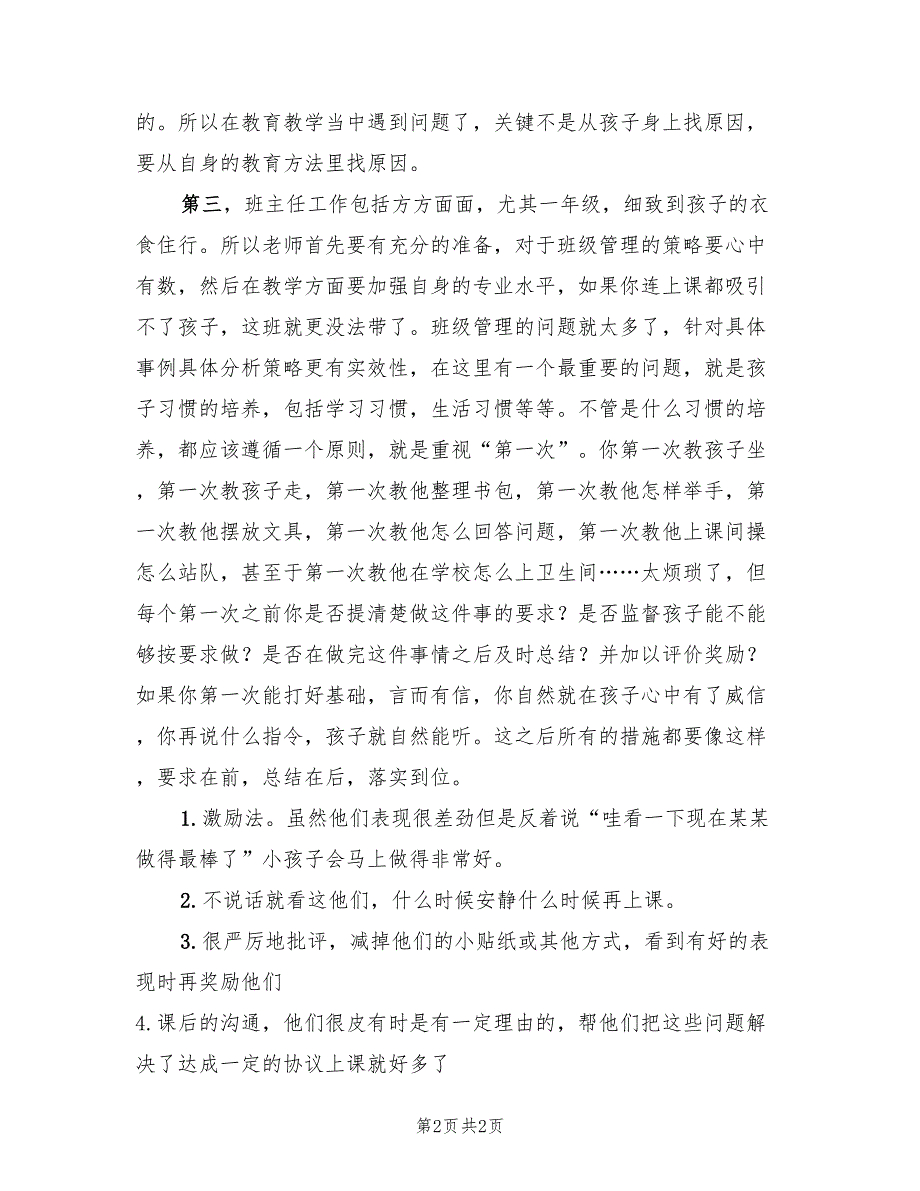 的。所以在教育教学当中遇到问题了，关键不是从孩子身上找原因，
要从自身的教育方法里找原因。
第三，班主任工作包括方方面面，尤其一年级，细致到孩子的衣
食住行。所以老师首先要有充分的准备，对于班级管理的策略要心中
有数，然后在教学方面要加强自身的专业水平，如果你连上课都吸引
不了孩子，这班就更没法带了。班级管理的问题就太多了，针对具体
事例具体分析策略更有实效性，在这里有一个最重要的问题，就是孩
子习惯的培养，包括学习习惯，生活习惯等等。不管是什么习惯的培
养，都应该遵循一个原则，就是重视“第一次”。你第一次教孩子坐
，第一次教孩子走，第一次教他整理书包，第一次教他怎样举手，第
一次教他摆放文具，第一次教他怎么回答问题，第一次教他上课间操
怎么站队，甚至于第一次教他在学校怎么上卫生间……太烦琐了，但
每个第一次之前你是否提清楚做这件事的要求？是否监督孩子能不能
够按要求做？是否在做完这件事情之后及时总结？并加以评价奖励？
如果你第一次能打好基础，言而有信，你自然就在孩子心中有了威信
，你再说什么指令，孩子就自然能听。这之后所有的措施都要像这样
，要求在前，总结在后，落实到位。
1.激励法。虽然他们表现很差劲但是反着说“哇看一下现在某某
做得最棒了”小孩子会马上做得非常好。
2.不说话就看这他们，什么时候安静什么时候再上课。
3.很严厉地批评，减掉他们的小贴纸或其他方式，看到有好的表
现时再奖励他们
4.课后的沟通，他们很皮有时是有一定理由的，帮他们把这些问题解
决了达成一定的协议上课就好多了
第2页 共2页